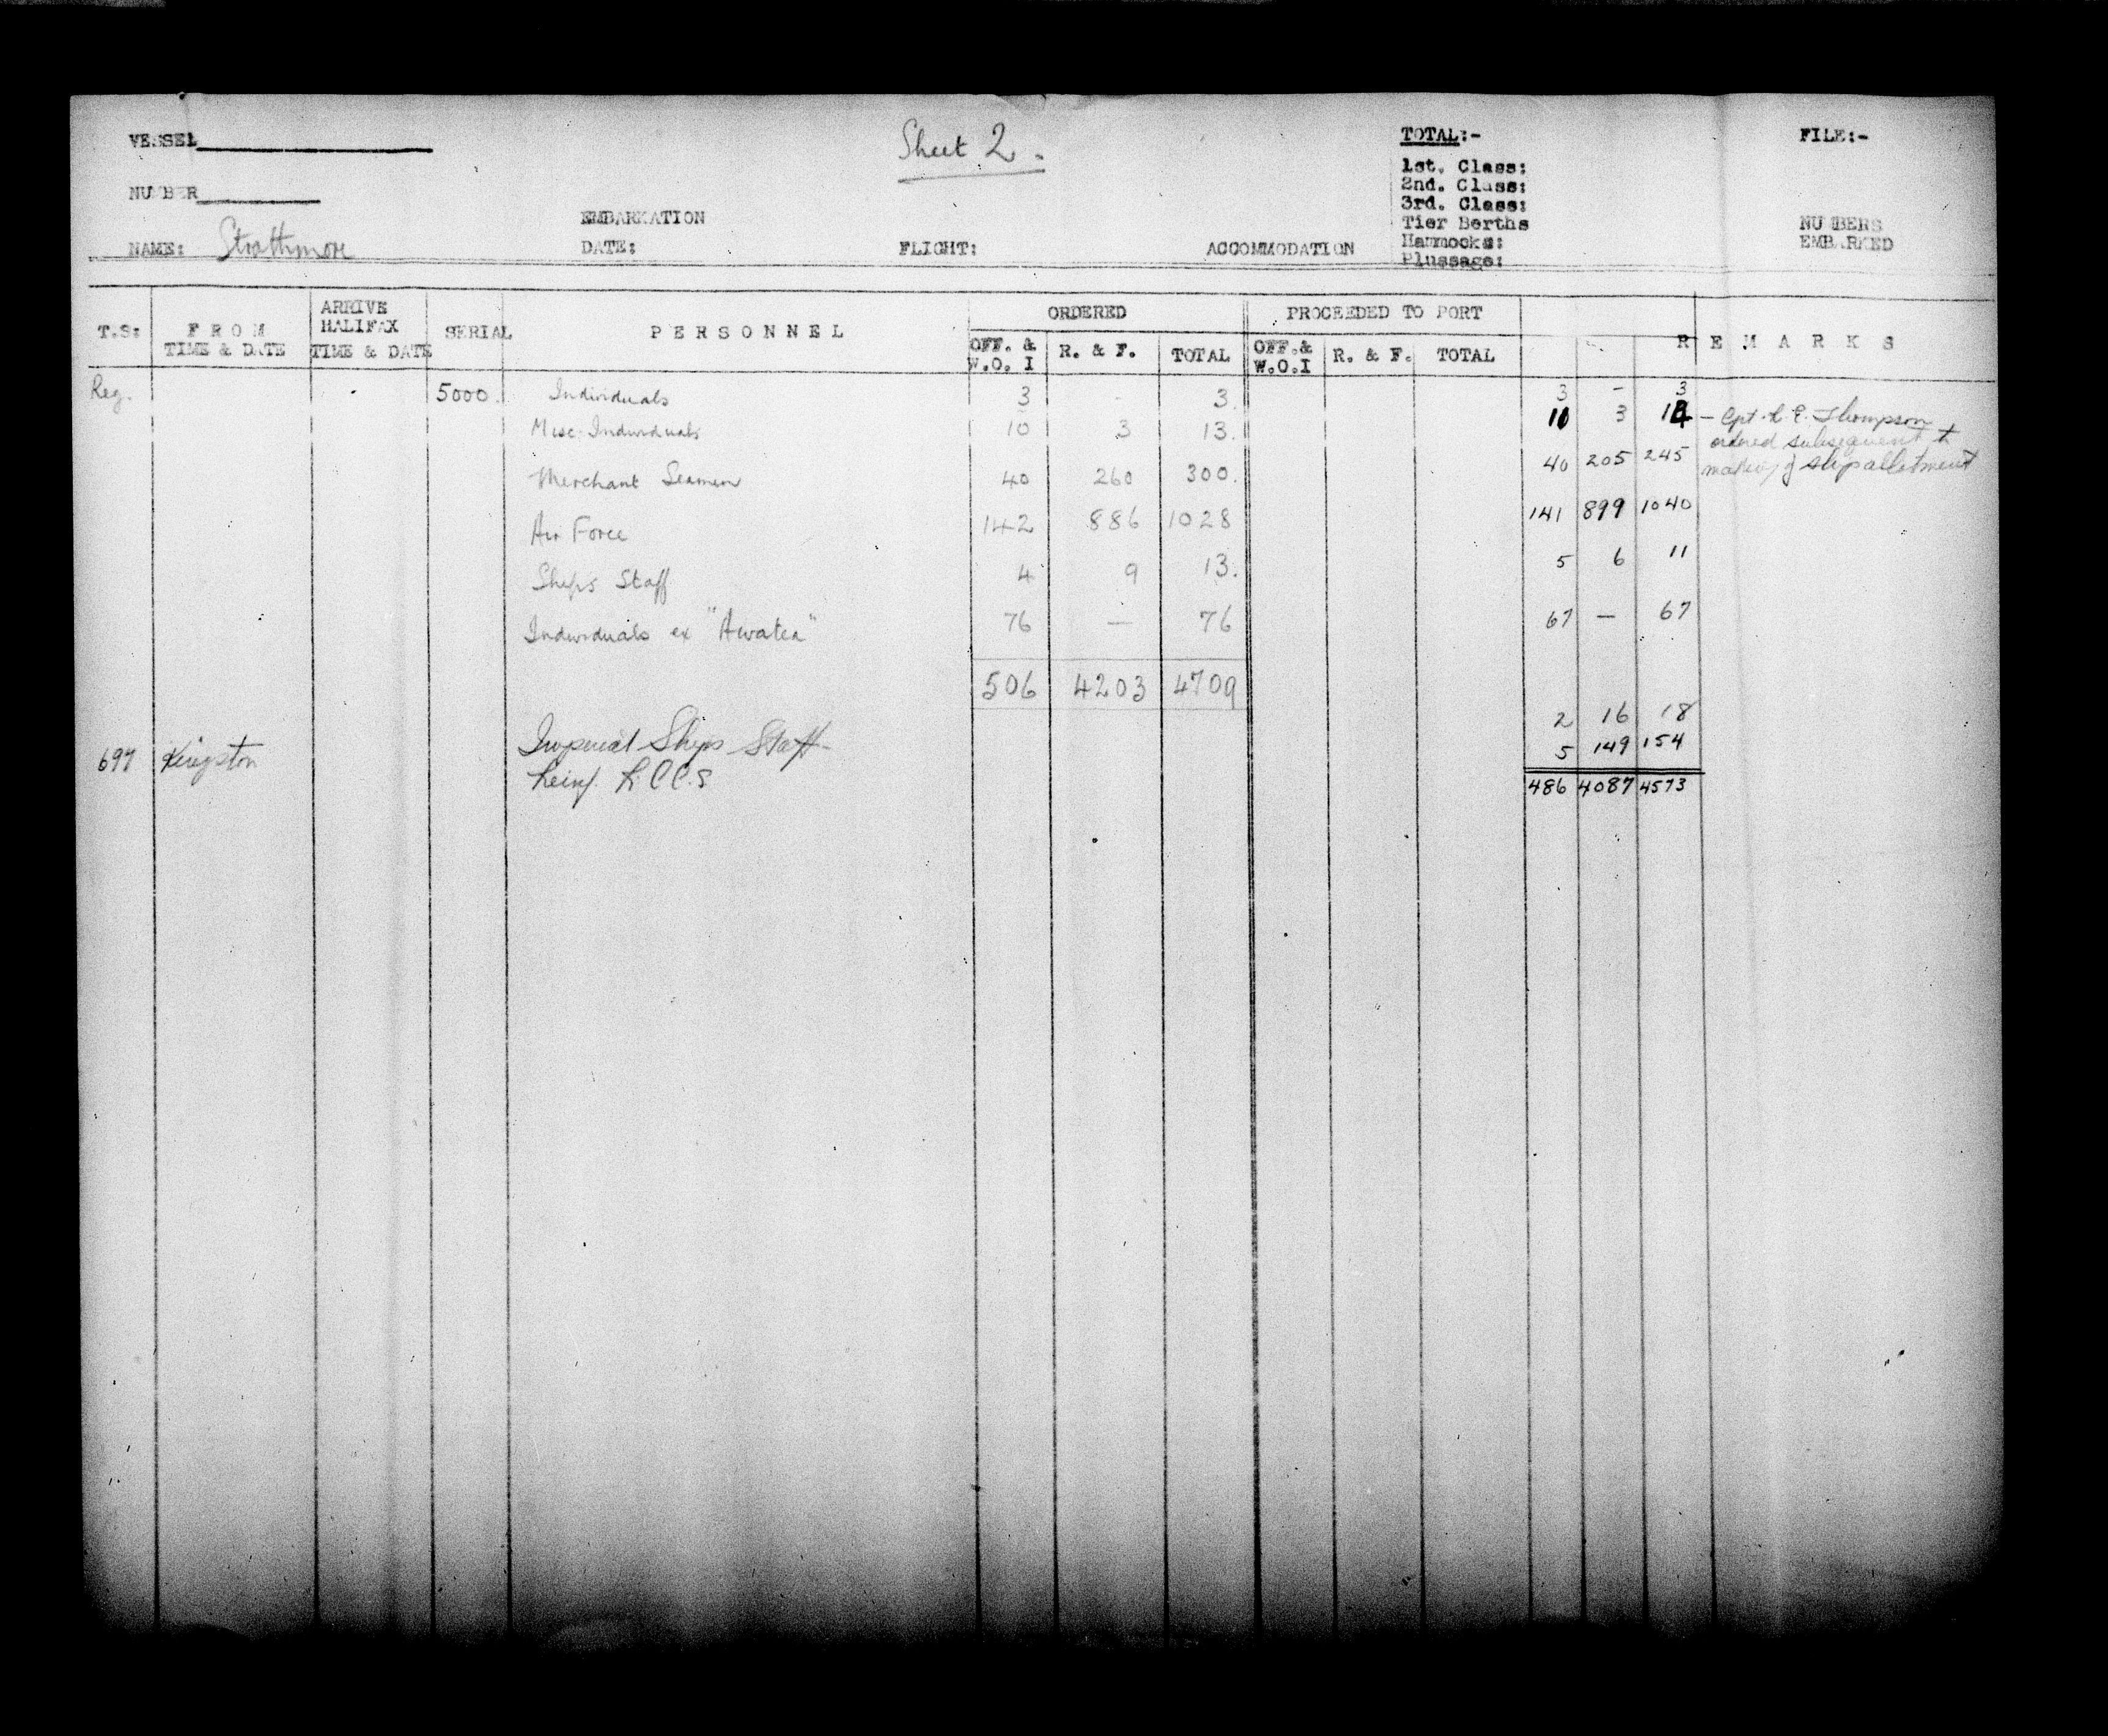 VESSEL
Sheet 2.
TOTAL:-
FILE:-
1st. Class:
2nd. Class:
3rd. Class:
Tier Berths
Hammocks:
Plussage:
NUMBER
NUMBERS
EMBARKED
NAME: Strathmore
EMBARKATION
DATE:
FLIGHT:
ACCOMMODATION
T.S:
FROM
TIME & DATE
ARRIVE
HALIFAX
TIME & DATE
SERIAL
PERSONNEL
ORDERED
OFF. &
W.O. I
R. & F.
TOTAL
PROCEEDED TO PORT
OFF.&
W.O.I
R. & F.
TOTAL
REMARKS
Reg. 5000 Individuals 3 - 3. 3 - 3
Misc. Individuals 10 3 13. 11 3 14 - Cpt. E. Thompson
ordered subsequent to
making of ship allotment
Merchant Seamen 40 260 300. 40 205 245
Air Force 142 886 1028 141 899 1040
Ships Staff 4 9 13. 5 6 11
Individuals ex "Awatea" 76 — 76 67 — 67
506 4203 4709
Imperial Ships Staff- 2 16 18
697 Kingston Reinf. R.C.C.S 5 149 154
486 4087 4573